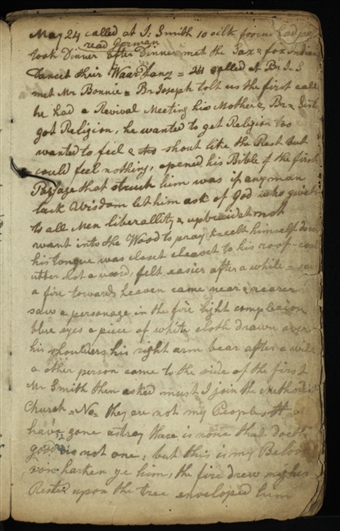 May 24 called at J. Smith 10 silk for
read German
took Dinner after Dinner met the Sax & for
Cancit their Waar hang = 24 called at Br J.s
met Mr Bonnie & Br Joseph tolt us the first call
he had a Revival Meeting his Mother & Br & Sist
got Religion, he wanted to get Religion too
wanted to feel & shout like the Rest but
could feel nothing, opened his Bible f the first
Passage that struck him was if any man
lack Wisdom let him ask of God who giveth
to all Men liberallity & upbraidet not
want into the Wood to pray kneelt himself down
his tongue was closet cleavet to his roof could
utter not a word, felt easier after a while = saw
a fire towards heaven came near & nearer
saw a personage in the fire light complexion
blue eyes a piece of white cloth drawn over
his shoulders his right arm bear after a while
a other person came to the side of the first
Mr Smith then asked must I join the Methodist
Church = No = they are not my People, th
have gone astray there is none that doeth
good no not one, but this is my Beloved
son harken ye him, the fire drew nigher
Rested upon the tree enveloped him